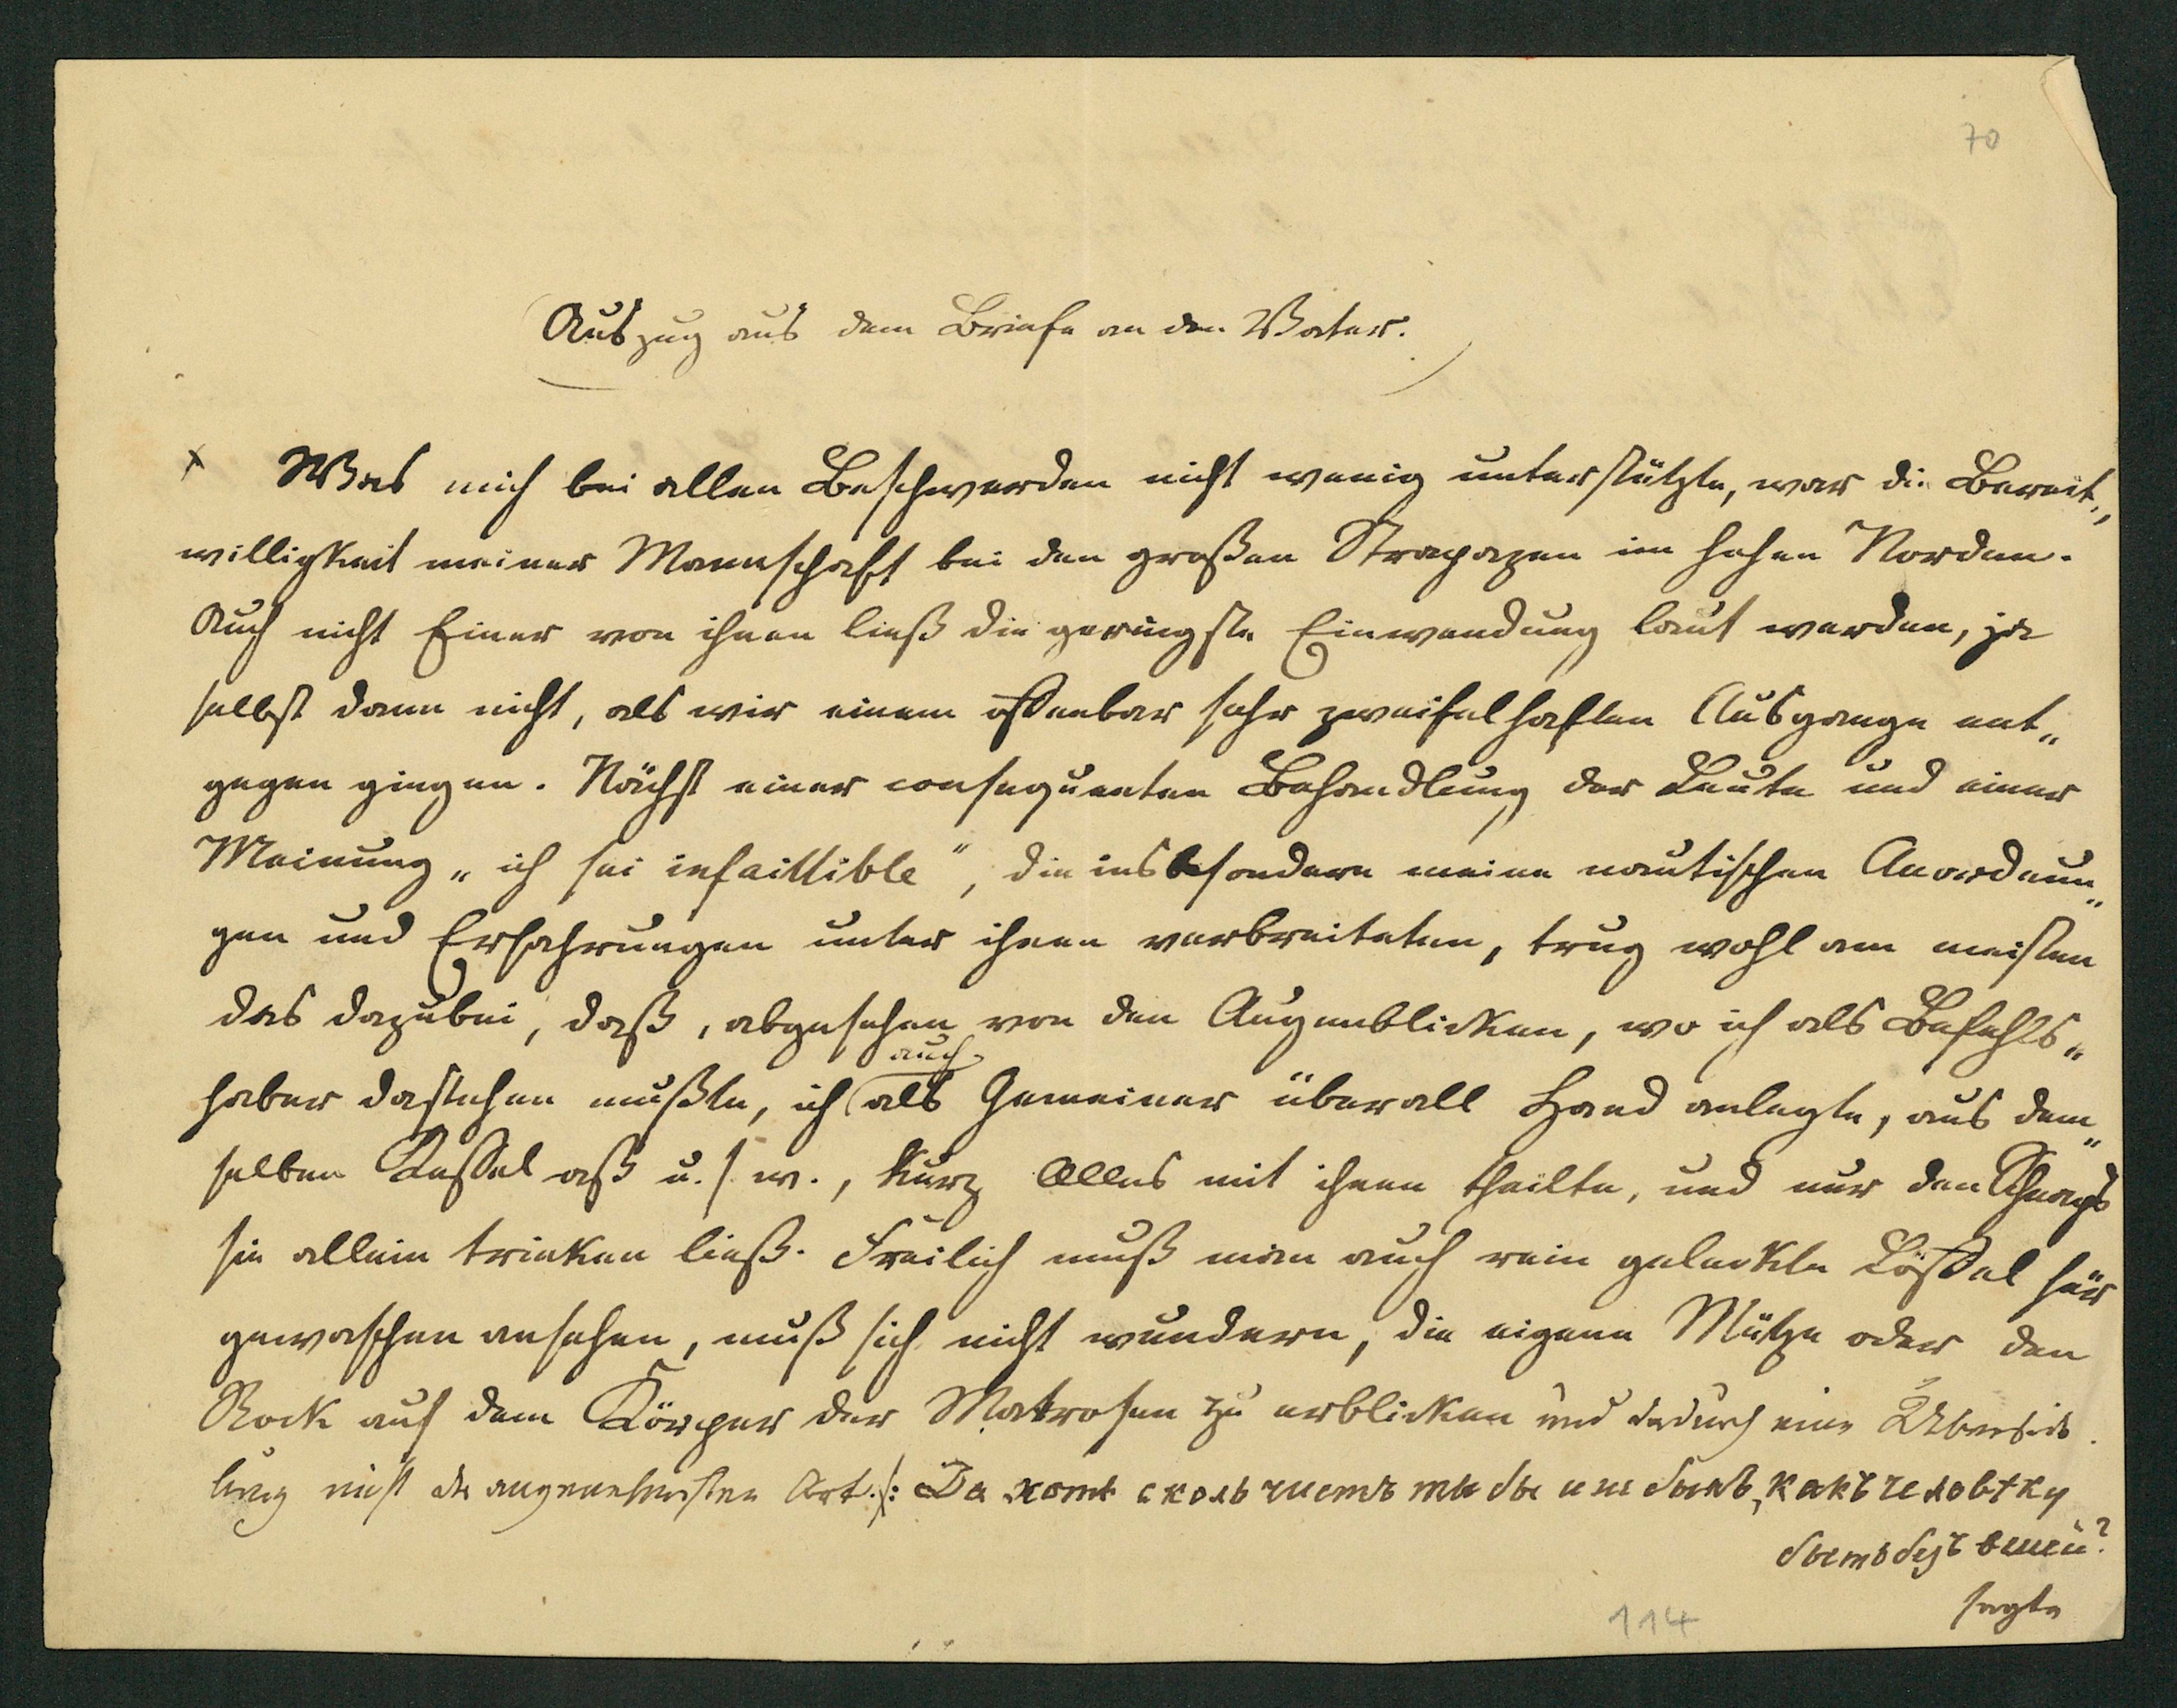 70
Auszug aus dem Briefe an den Vater.
x Was mich bei allen Beschwerden nicht wenig unterstützte, war die Bereit„
willigkeit meiner Mannschaft bei den großen Strapazen im hohen Norden.
Auch nicht Einer von ihnen ließ die geringste Einwendung laut werden, ja
selbst dann nicht, als wir einem offenbar sehr zweifelhaften Ausgange ent„
gegen gingen. Nächst einer consequenten Behandlung der Leute und einer
Meinung „ich sei infaillible", die insbesondere meine nautischen Anordnun„
gen und Erfahrungen unter ihnen verbreiteten, trug wohl am meisten
das dazu bei, daß, abgesehen von den Augenblicken, wo ich als Befehls„
auch
haber dastehen mußte, ich als Gemeiner überall Hand anlegte, aus dem„
selben Kessel aß u. s. w., kurz Alles mit ihnen theilte, und nur den Schnaps
sie allein trinken ließ. Freilich muß man auch rein geleckte Löffel für
gewaschen ansehen, muß sich nicht wundern, die eigene Mütze oder den
Rock auf dem Körper der Matrosen zu erblicken und dadurch eine
lung nicht der angenehmsten Art. /: Да хоть сколь чистъ ты бы ни былъ, какъ человѣку
быть безъ вшей?
sagte
114